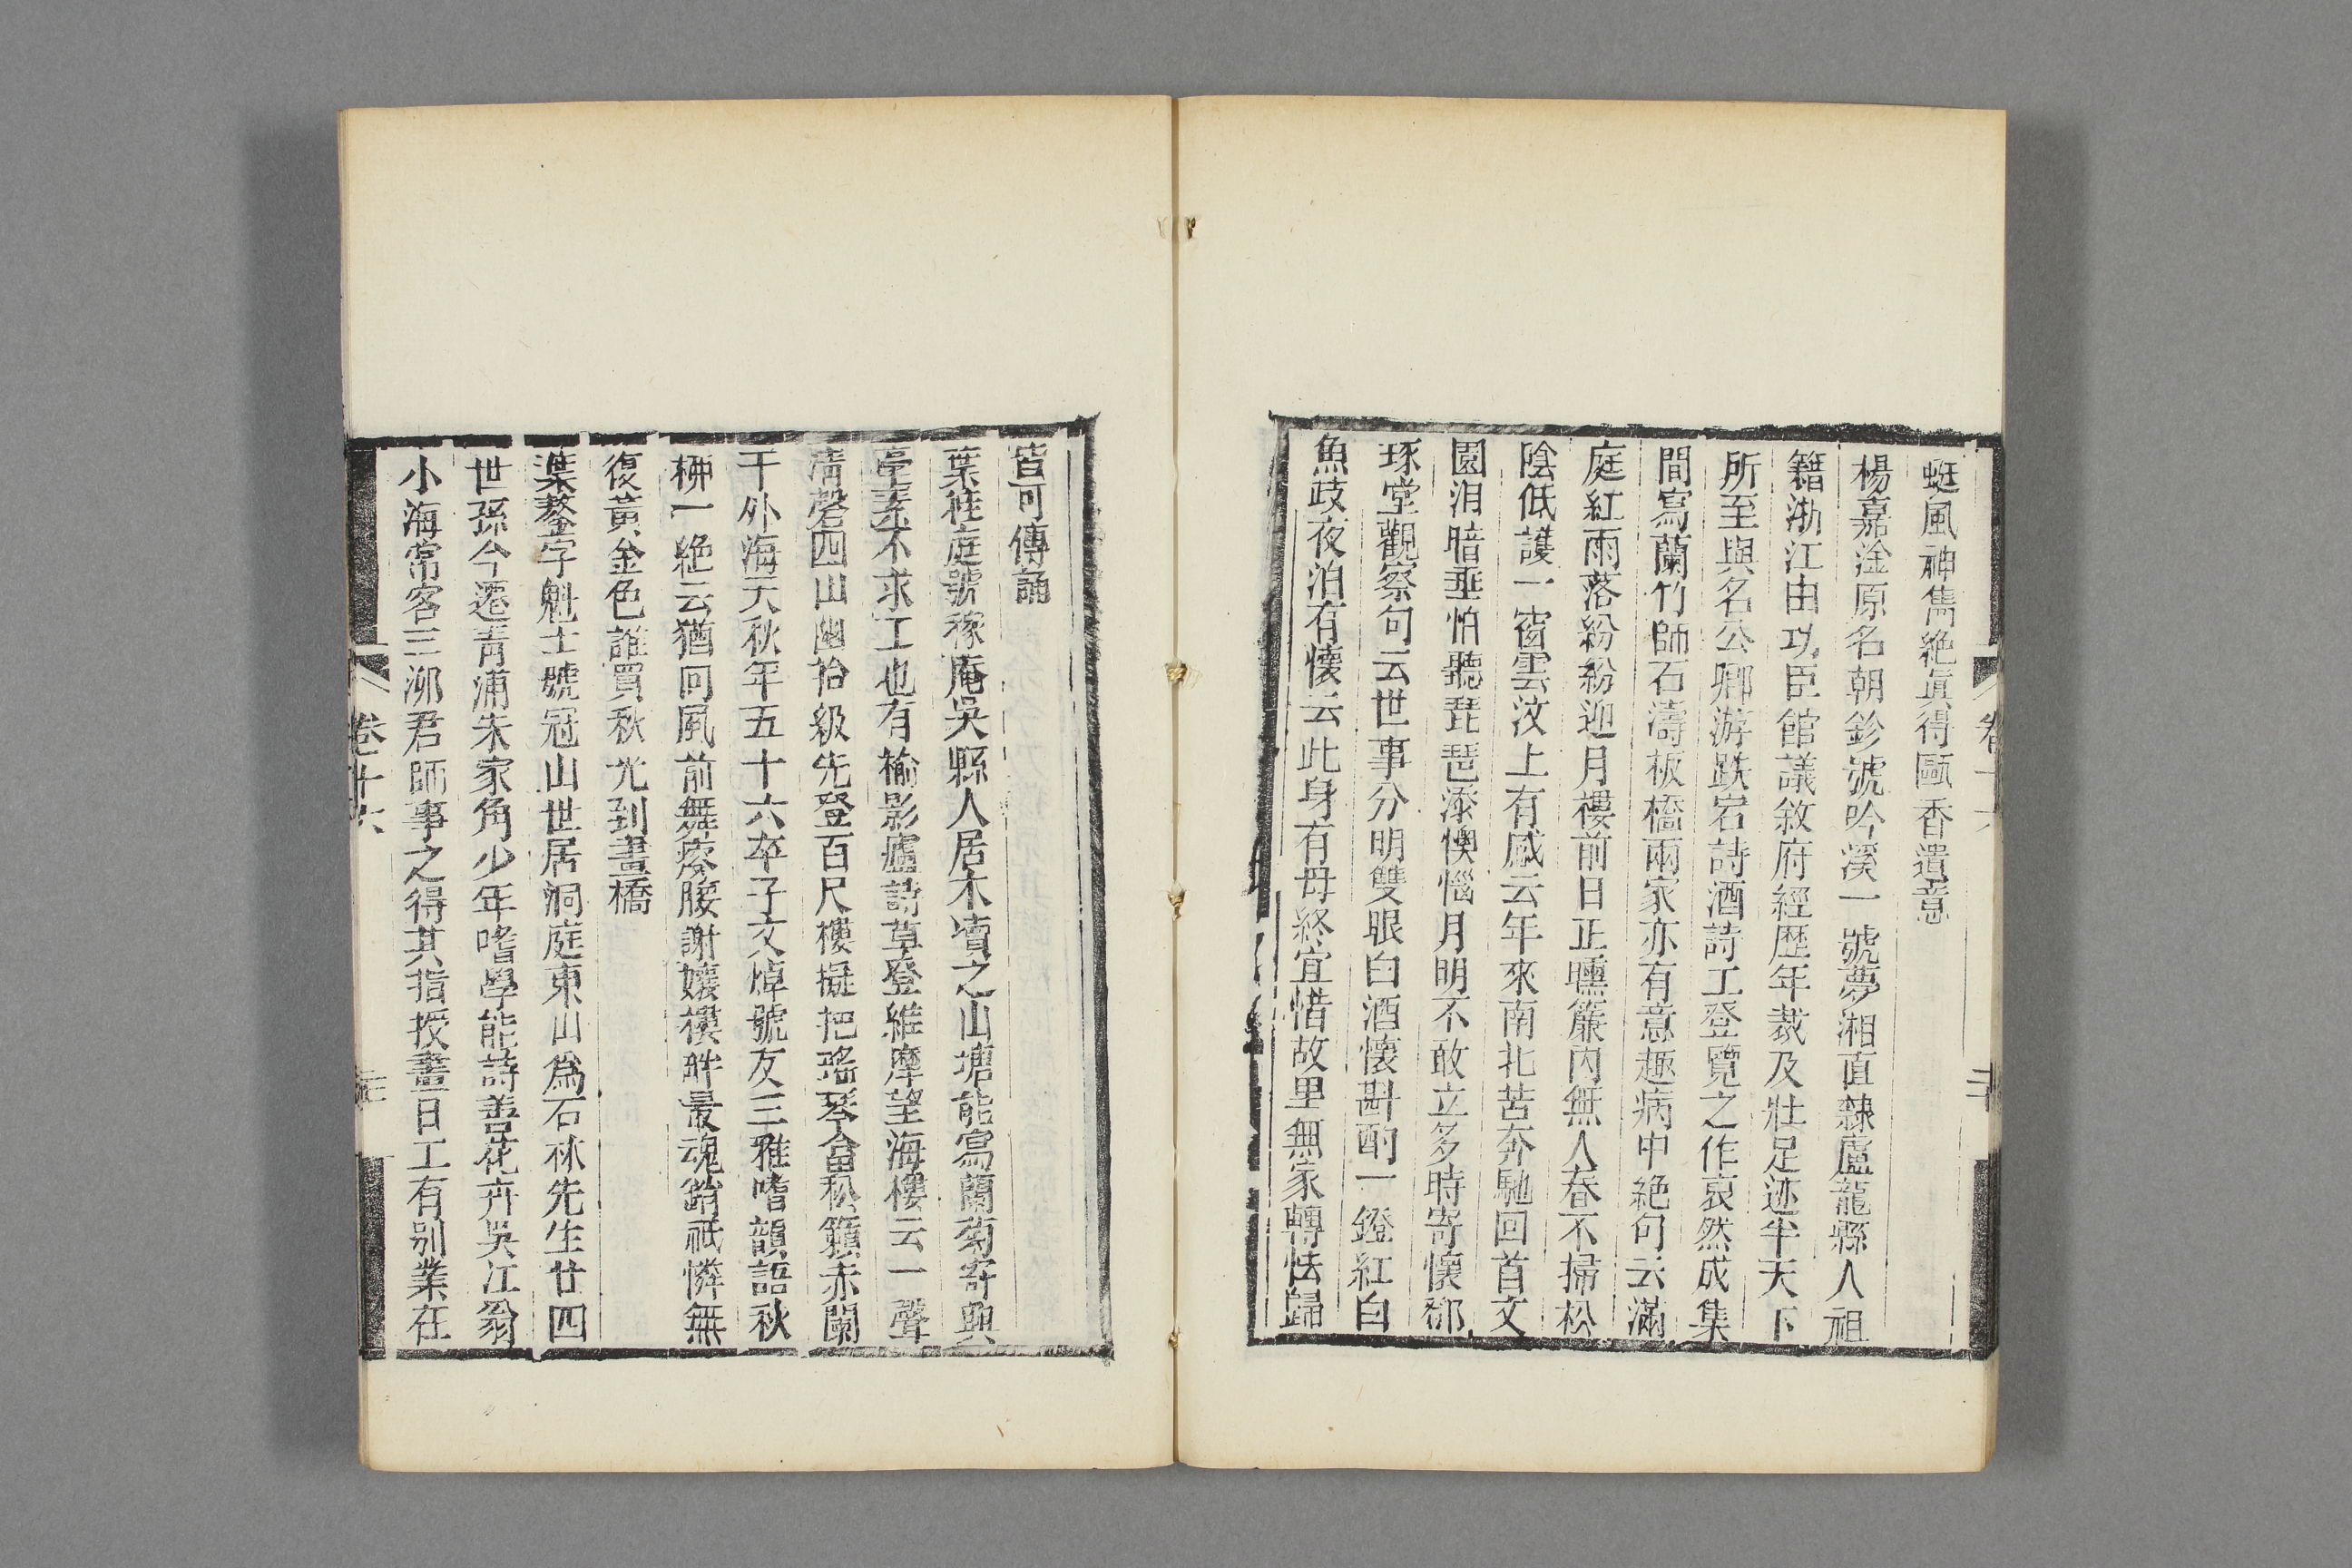 蜓風神雋絕眞得甌香遺意
楊嘉淦原名朝鉁號吟溪一號夢湘直隸盧龍縣人祖
籍浙江由功臣館議敘府經歷年裁及壯足迹半天下
所至與名公卿游跌宕詩酒詩工登覽之作裒然成集
間寫蘭竹師石濤板橋兩家亦有意趣病中絕句云滿
庭紅雨落紛紛迎月樓前日正曛簾內無人春不掃松
陰低護一窗雲汶上有感云年來南北苦奔馳回首文
園淚暗垂怕聽琵琶添懊惱月明不敢立多時寄懷鄒
琢堂觀察句云世事分明雙眼白酒懷斟酌一鐙紅白
魚歧夜泊有懷云此身有母終宜惜故里無家轉怯歸
皆可傳誦
葉桂庭號稼庵吳縣人居木瀆之山塘能寫蘭菊寄興
毫素不求工也有榆影廬詩草登維摩望海樓云一聲
清磬四山幽拾級先登百尺樓擬把瑤琴酬松籟赤闌
干外海天秋年五十六卒子文焯號友三雅嗜韻語秋
柳一絕云猶回風前舞瘦腰謝孃樓畔最魂銷祇憐無
復黃金色誰買秋光到畫橋
葉鏊字魁士號冠山世居洞庭東山爲石林先生廿四
世孫今遷青浦朱家角少年嗜學能詩善花卉吳江翁
小海常客三泖君師事之得其指授畫日工有別業在
卷十六